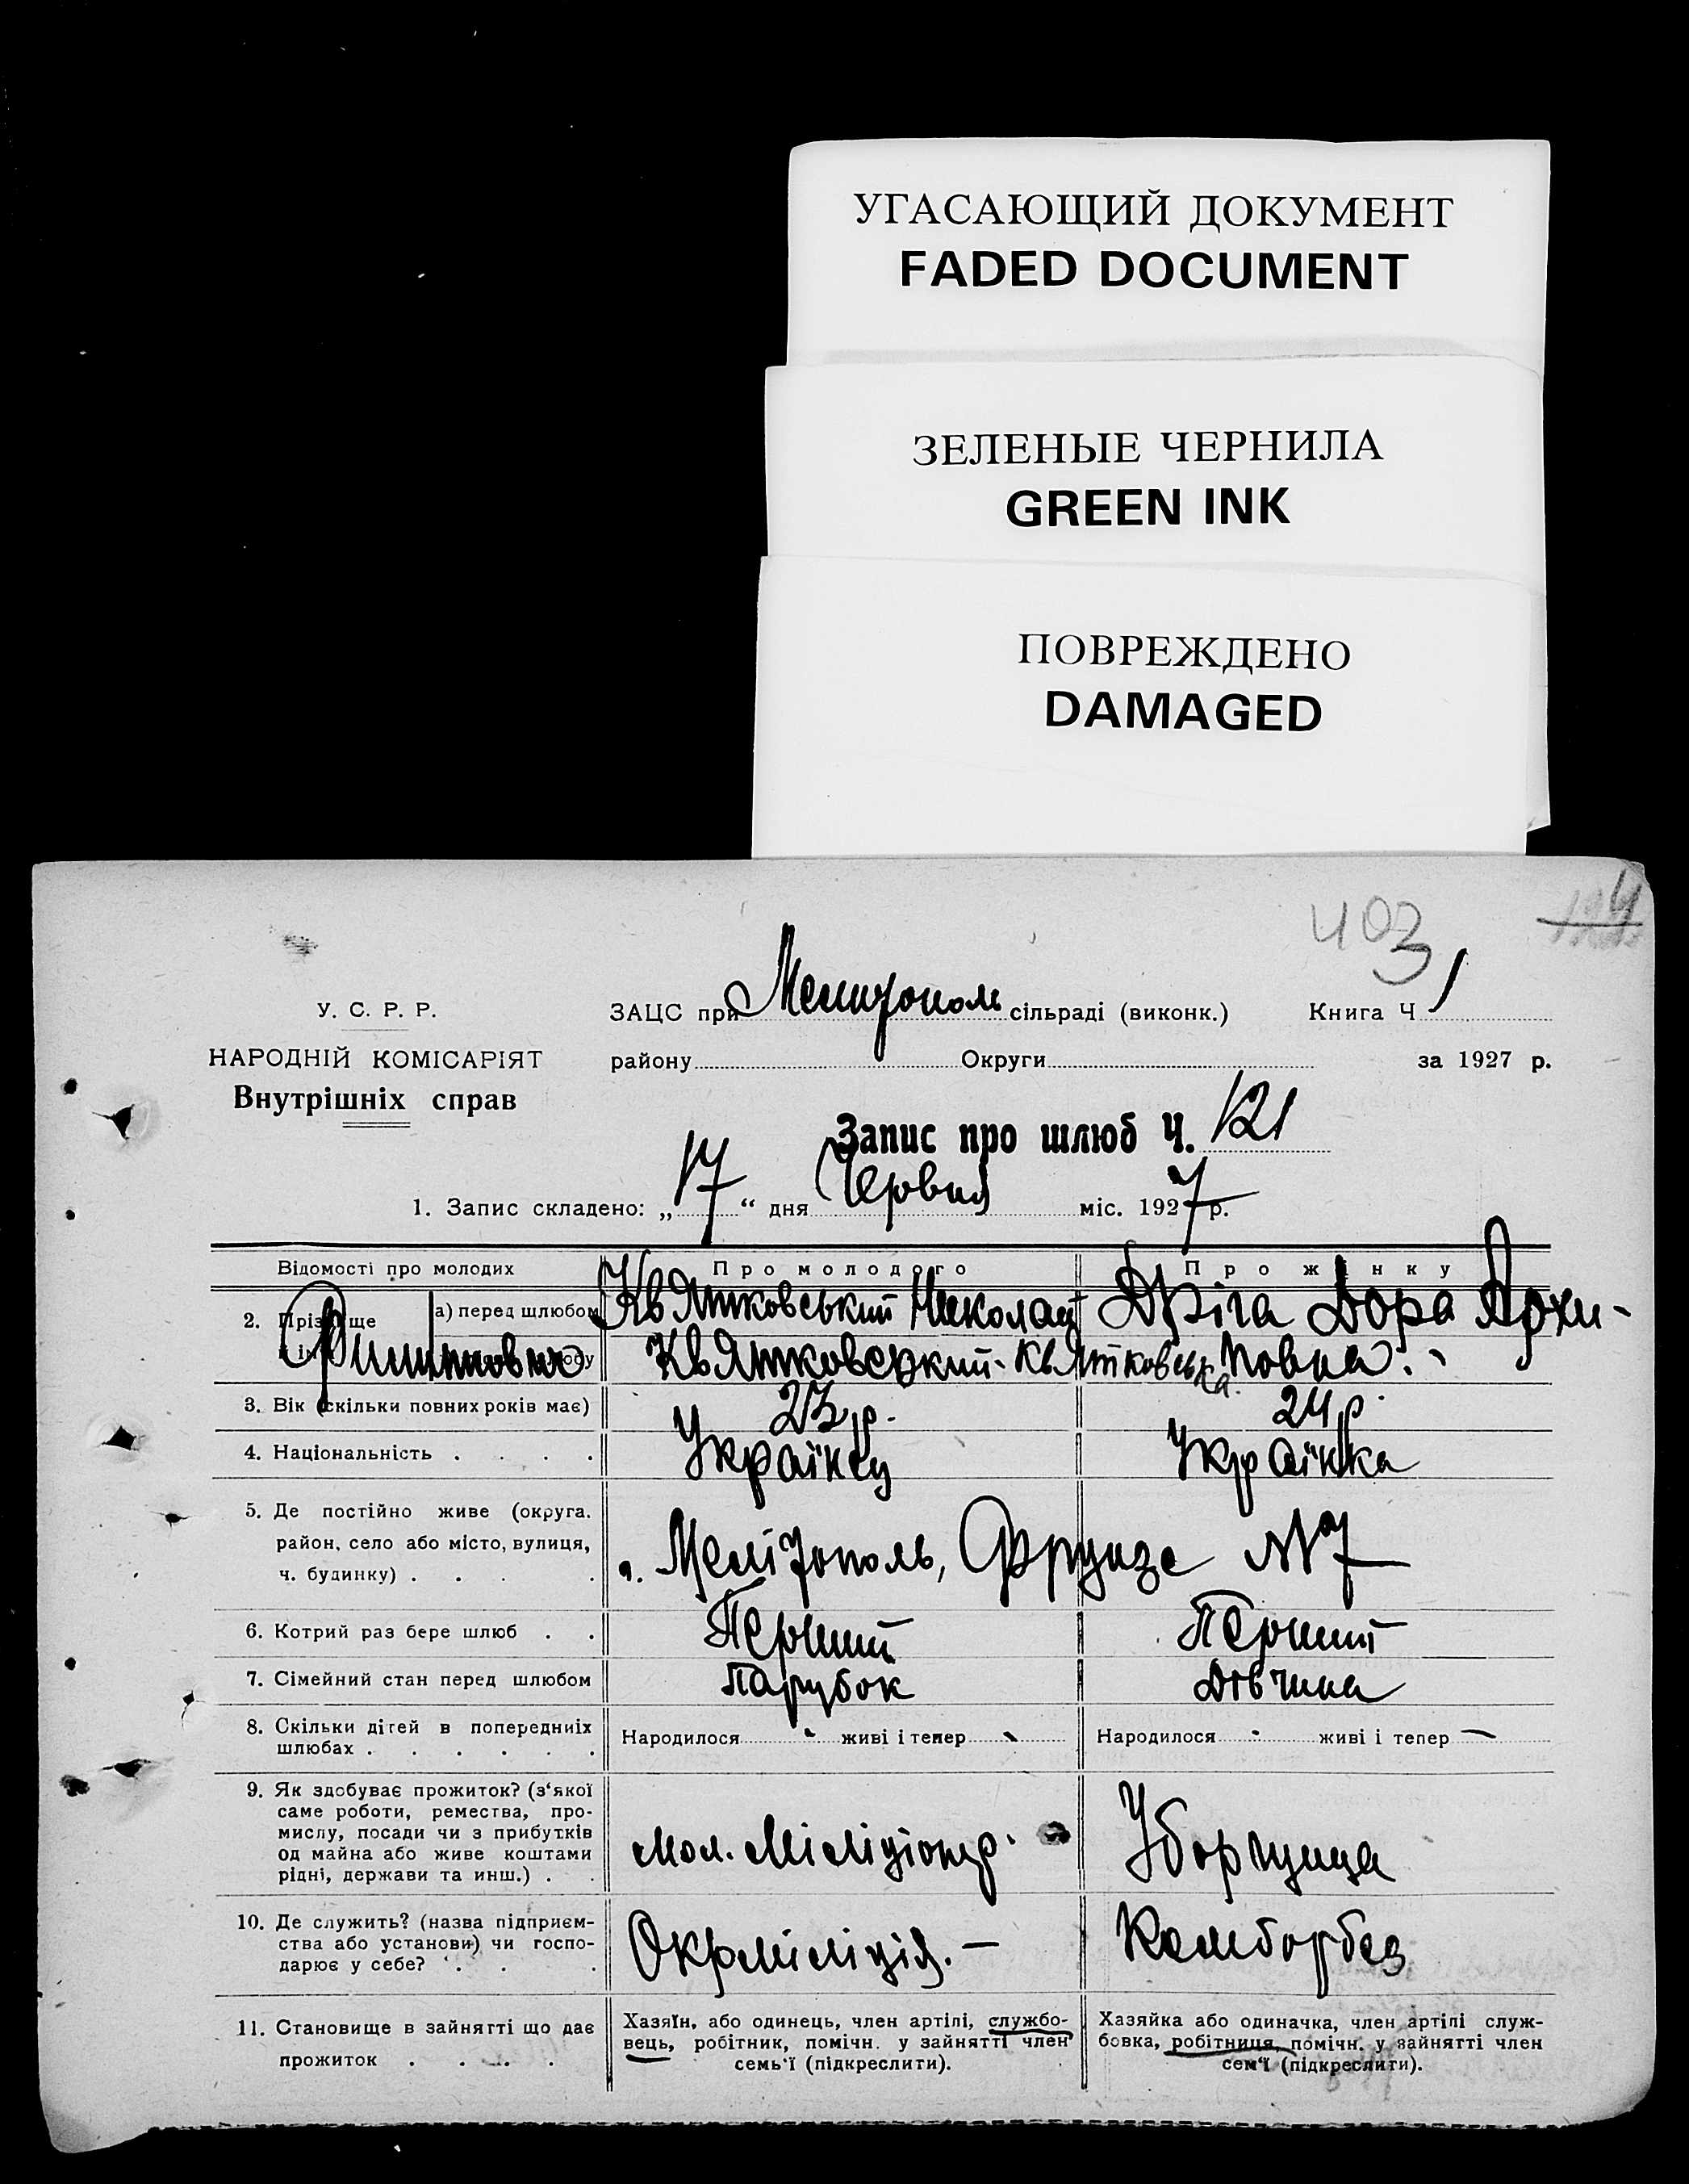 УГАСАЮЩИЙ ДОКУМЕНТ
FADED DOCUMENT
ЗЕЛЕНЫЕ ЧЕРНИЛА
GREEN INK
ПОВРЕЖДЕНО
DAMAGED
403
У. С. Р. Р.
ЗАЦС при Мелитополь сільраді (виконк.) Книга Ч 1
НАРОДНІЙ КОМІСАРІЯТ
району Округи за 1927 р.
Внутрішніх справ
Запис про шлюб Ч. 121
1. Запис складено: „17“ дня Червня міс. 1927 р.
Відомості про молодих Про молодого Про жінку
2. Прізвище а) перед шлюбом Квятковський Николай Дзіга Дора Архи-
Квятковський - Квятковська. повна.
3. Вік (скільки повних років має) 23 р. 24 р.
4. Національність . . . . Українец Українка
5. Де постійно живе (округа.
район, село або місто, вулиця,
ч. будинку) . . . м. Мелітополь, Фрунзе №7
6. Котрий раз бере шлюб . . Перший Перший
7. Сімейний стан перед шлюбом Парубок Дівчина
8. Скільки дітей в попередниіх
шлюбах . . . . . .
Народилося - живі і тепер - Народилося - живі і тепер -
9. Як здобуває прожиток? (з‘якої
саме роботи, ремества, про-
мислу, посади чи з прибутків
од майна або живе коштами
рідні, держави та инш.) . .
мол. Міліціонер. Уборщица
10. Де служить? (назва підприєм-
ства або установи) чи госпо-
дарює у себе? . . .
Окрміліція. — Камборбез
11. Становище в зайнятті що дає
прожиток . . . . .
Хазяїн, або одинець, член артілі, службо-
вець, робітник, помічн. у зайнятті член
семь‘ї (підкреслити).
Хазяйка або одиначка, член артілі служ-
бовка, робітниця, помічн. у зайнятті член
сем‘ї (підкреслити).